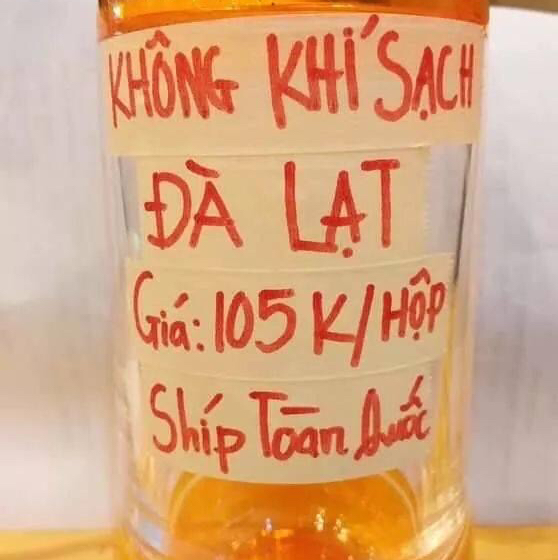 KHÔNG KHÍ SẠCH
ĐÀ LẠT
Giá: 105 K/HỘP
Ship Toàn Quốc